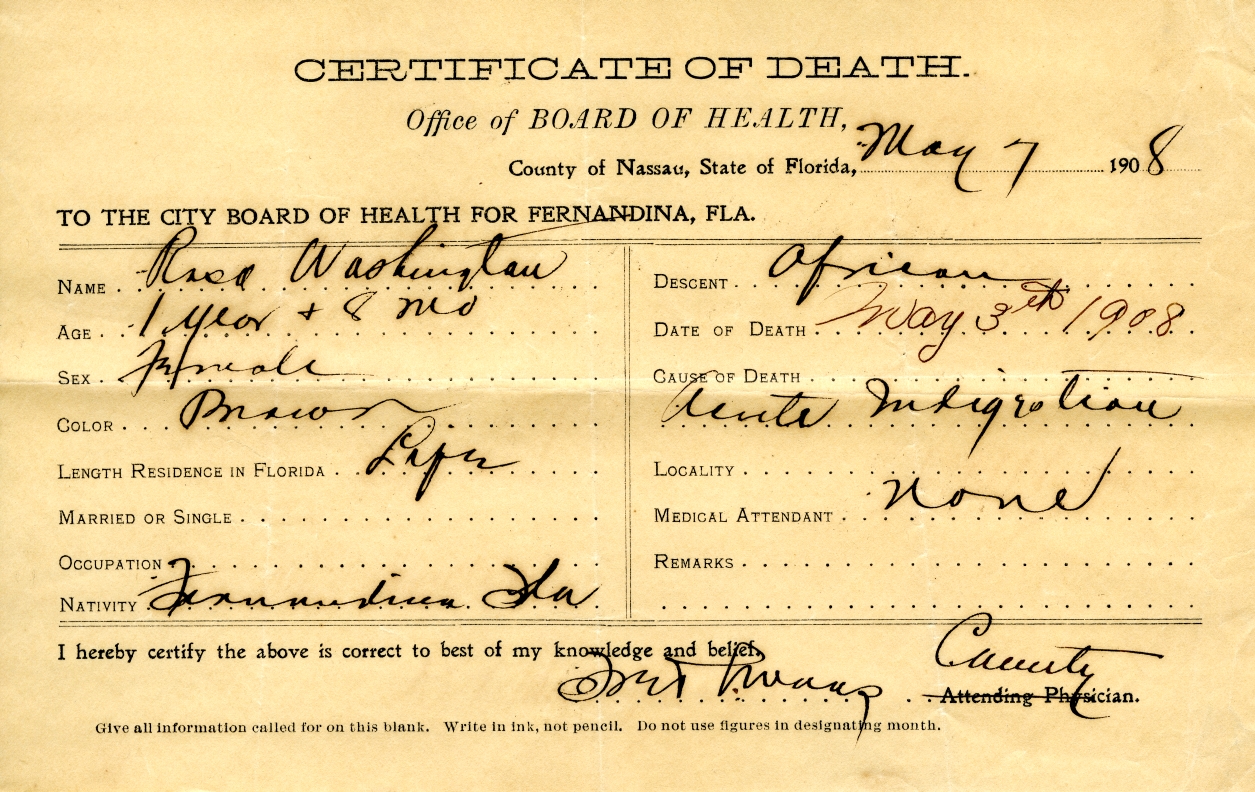 CERTIFICATE OF DEATH.
Office of BOARD OF HEALTH,
County of Nassau, State of Florida, May 7 1908
TO THE CITY BOARD OF HEALTH FOR FERNANDINA, FLA.
NAME Rosa Washington
AGE 1 year + 8 mo
SEX Female
COLOR Brown
LENGTH RESIDENCE IN FLORIDA Life
MARRIED OR SINGLE
OCCUPATION
NATIVITY Fernandina Fla
DESCENT African
DATE OF DEATH May 3th 1908
CAUSE OF DEATH
Acute Indigestion
LOCALITY
MEDICAL ATTENDANT None
REMARKS
I hereby certify the above is correct to best of my knowledge and belief.
County
Attending Physician.
Give all information called for on this blank. Write in ink, not pencil. Do not use figures in designating month.